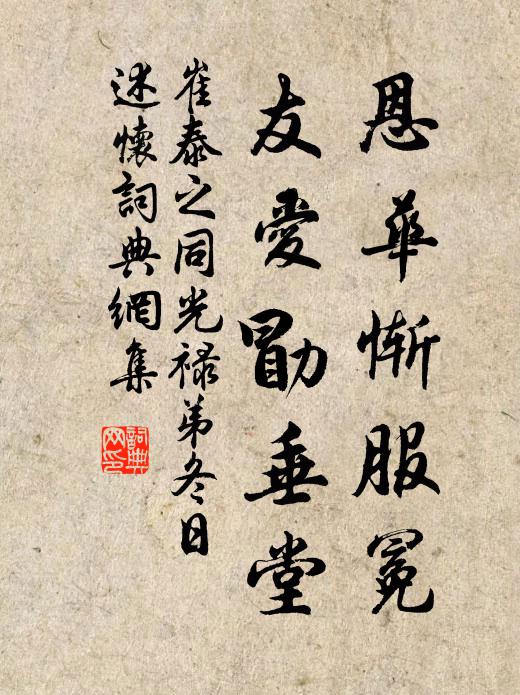 恩華慚服冕
友愛勖垂堂
崔泰之同光祿弟冬日
述懷詞典網集
詞典
网印